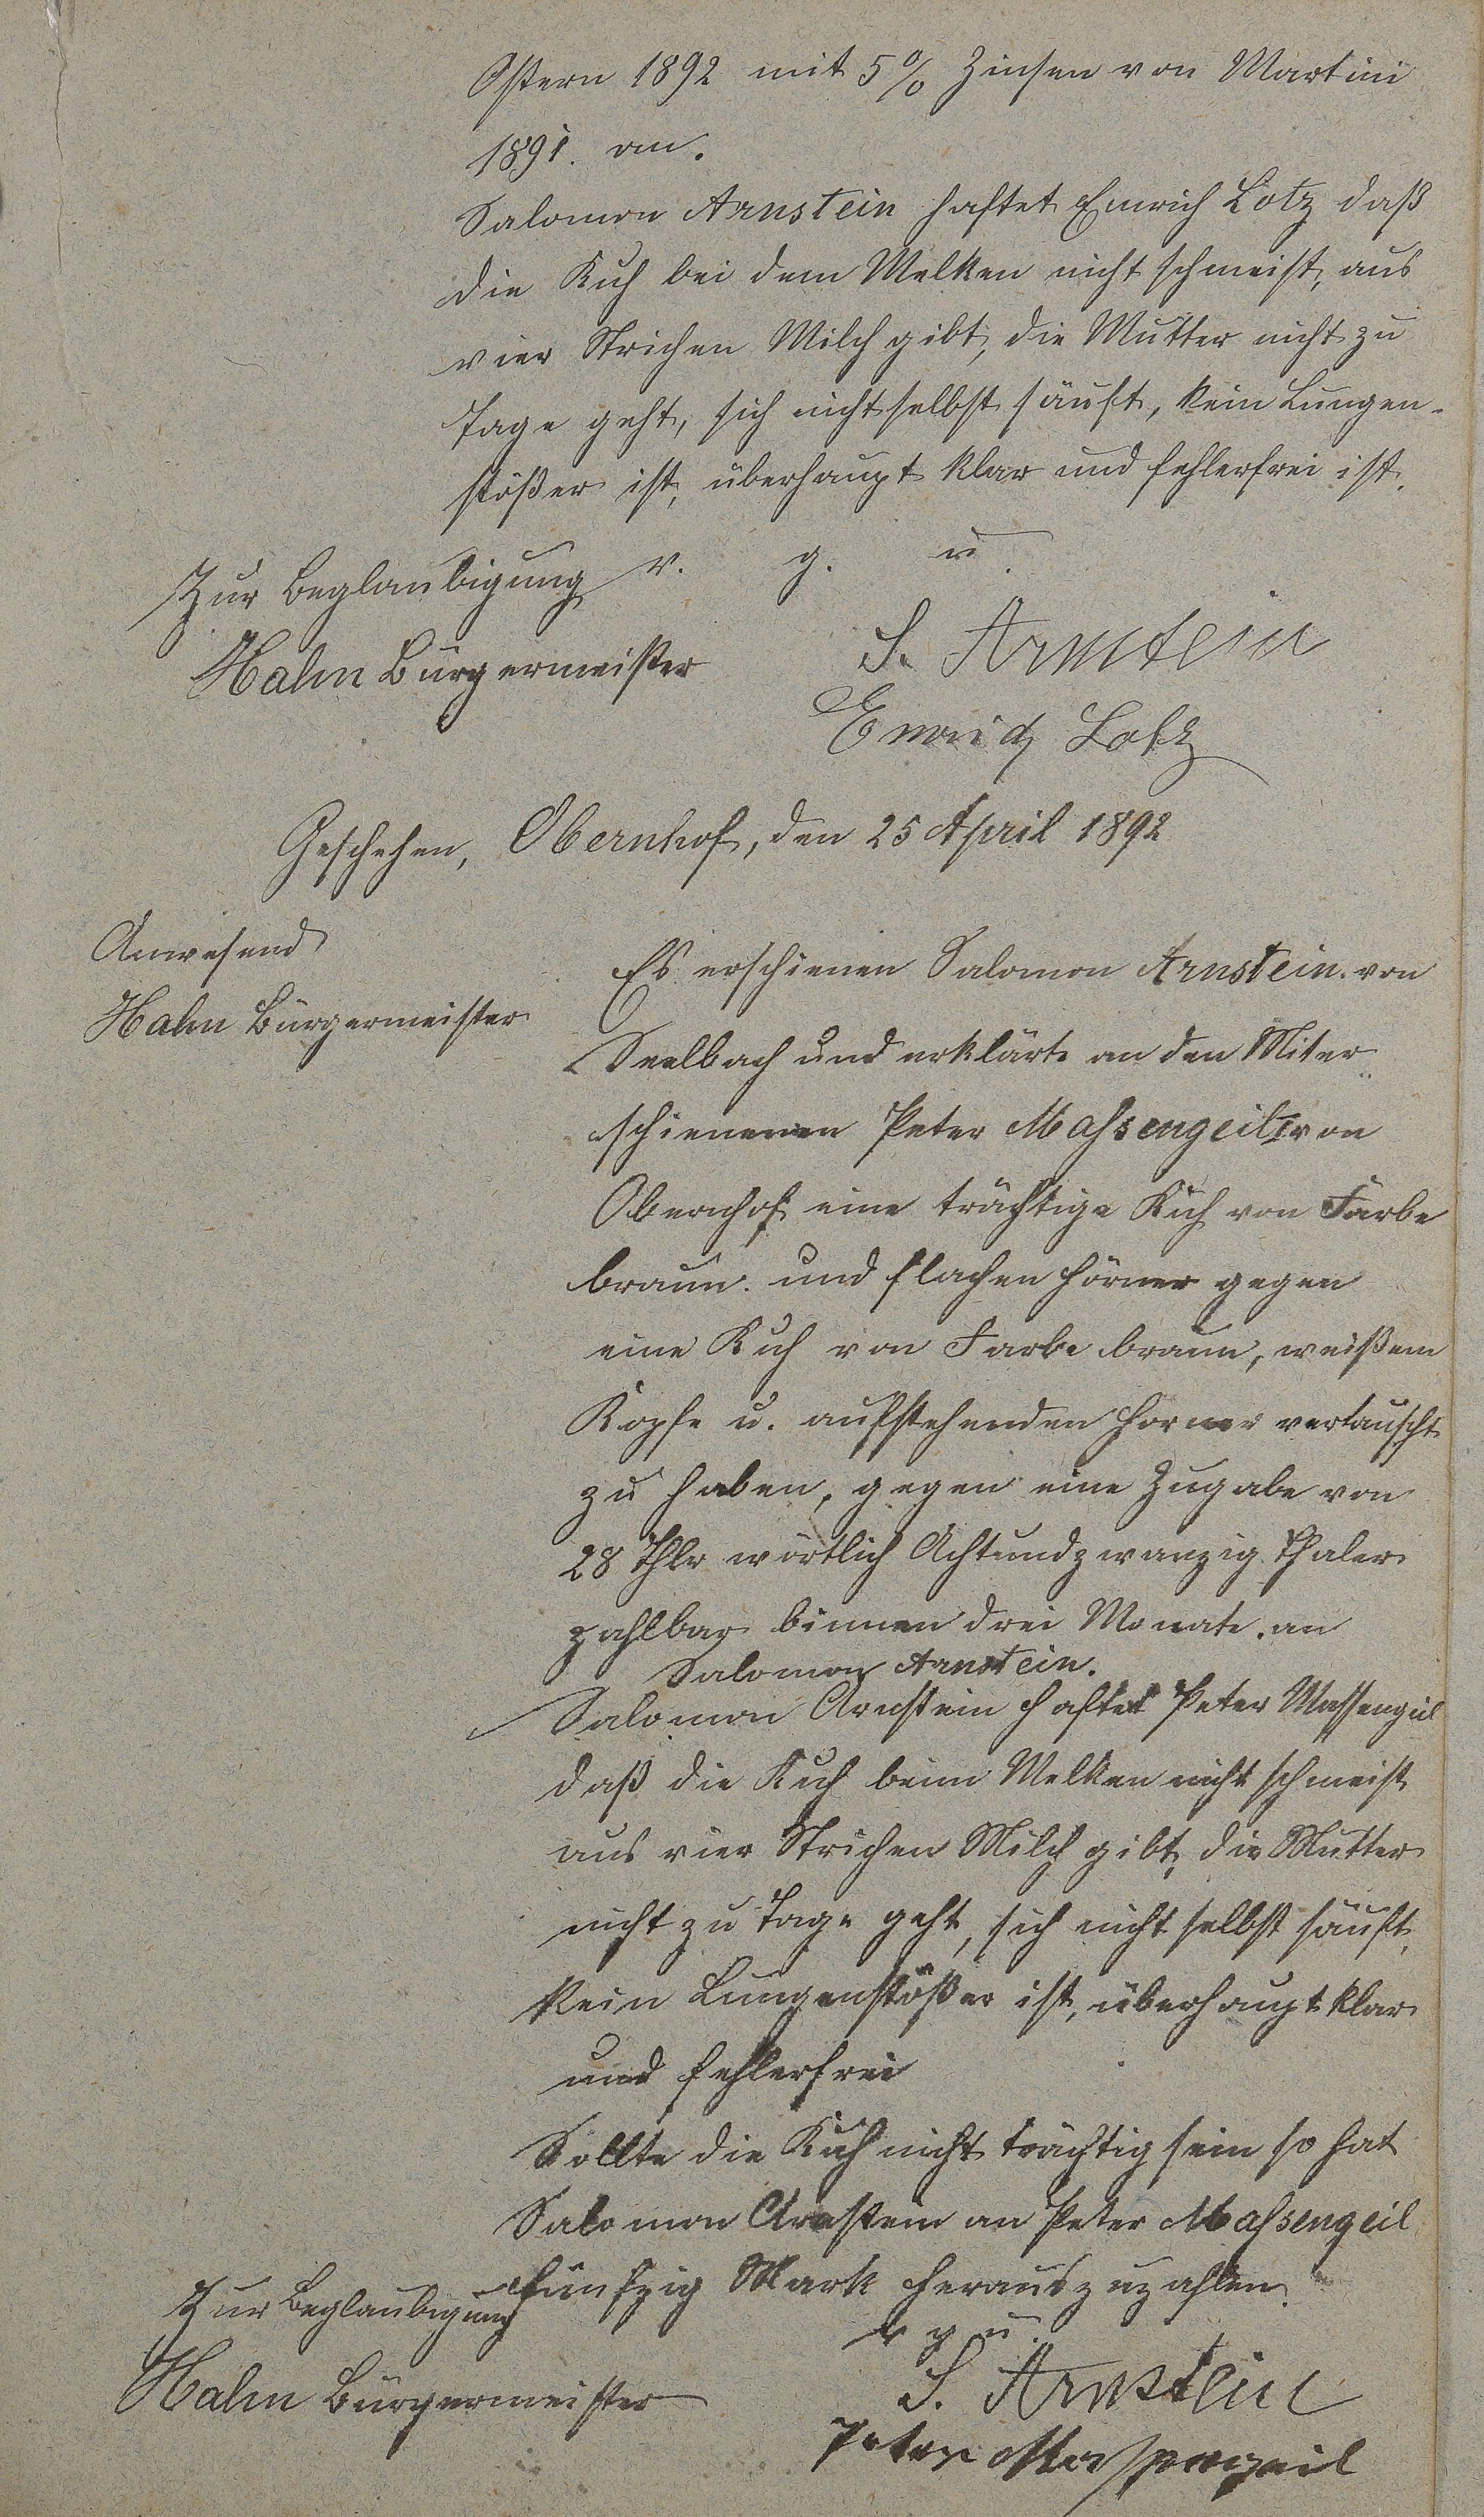 Ostern 1892 mit 5% Zinsen von Martini
1891. an.
Salomon Arnstein haftet Emrich Lotz daß
die Kuh bei dem Melken nicht schmeist, aus
vier Strichen Milch gibt, die Mutter nicht zu
Tage geht, sich nicht selbst säuft, kein Lungen-
stößer ist, überhaupt klar und fehlerfrei ist.
v. g. u.
Zur Beglaubigung
Hahn Bürgermeister
S. Arnstein
Emrich Lotz
Geschehen, Obernhof, den 25 April 1892
Anwesend
Hahn Bürgermeister
Es erschienen Salomon Arnstein von
Seelbach und erklärte an den Miter
schienenen Peter Massengeil I von
Obernhof eine trächtige Kuh von Farbe
braun. und flachen Hörner gegen
eine Kuh von Farbe braun, weißem
Kopfe u. aufstehenden Horner vertauscht
zu haben, gegen eine Zugabe von
28 Thlr wörtlich Achtundzwanzig Thaler
zahlbar binnen drei Monate. an
Salomon Arnstein.
Salomon Arnstein haftet Peter Massengeil
daß die Kuh beim Melken nicht schmeist
aus vier Strichen Milch gibt, die Mutter
nicht zu Tage geht, sich nicht selbst säuft,
kein Lungenstößer ist, überhaupt klar
und fehlerfrei
Sollte die Kuh nicht trächtig sein so hat
Salomon Arnstein an Peter Massengeil
fünfzig Mark herauszuzahlen.
v g u.
Zur Beglaubigung
Hahn Bürgermeister
S. Arnstein
Peter Massengeil